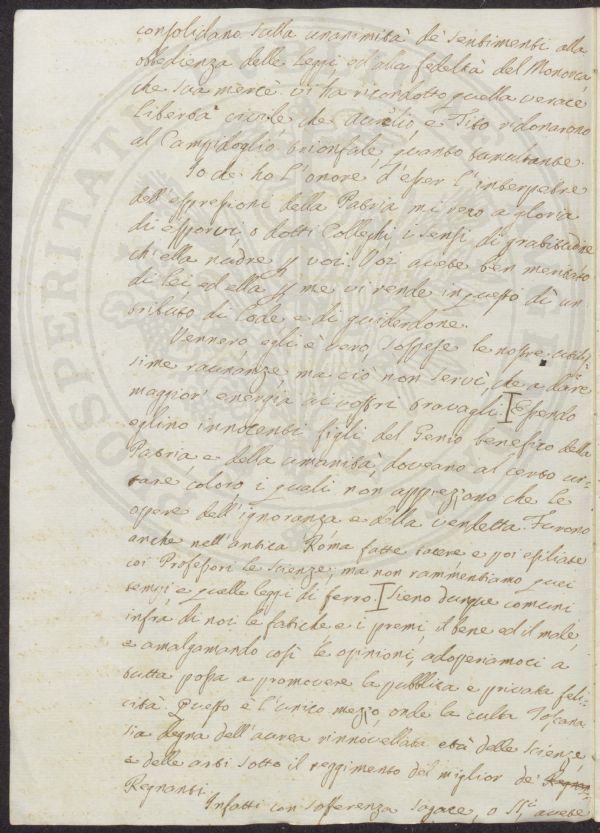 consolidano sulla unanimità de' sentimenti alla
obbedienza delle Leggi, ed alla fedeltà del Monarca
che sua mercè vi ha ricondotto quella verace
libertà civile che Aurelio, e Tito ridonarono
al Campidoglio trionfale quanto tumultuante.
Io che ho l'onore d'esser l'interpetre
dell'espressioni della Patria, mi reco a gloria
di esporvi, o dotti Colleghi, i sensi di gratitudine
ch'ella nudre p voi. Voi avete ben meritato
di lei ed ella p me vi rende in questo dì un
tributo di lode e di guiderdone.
Vennero egli è vero, sospese le nostre utilis
sime raunanze ma ciò non servì, che a dare
maggior energia ai vostri travagli. Essendo
eglino innocenti figli del Genio benefico della
Patria e della umanità, doveano al certo ur=
tare coloro i quali non apprezzano che le
opere dell'ignoranza e della vendetta. Furono
anche nell'antica Roma fatte tacere e poi esiliate
coi Professori le scienze; ma non rammentiamo quei
tempi e quelle leggi di ferro. Sieno dunque comuni
infra di noi le fatiche e i premi, il bene ed il male,
e amalgamando così le opinioni, adoperiamoci a
tutta possa a promuovere la pubblica e privata feli=
cità. Questo è l'unico mezzo, onde la culta Toscana
sia degna dell'aurea rinnovellata età delle Scienze
e delle arti sotto il reggimento del miglior de' Regnan=
Regnanti.
Infatti con sofferenza sagace, o SS.ri avete
PROSPERITATI PUBLICAE